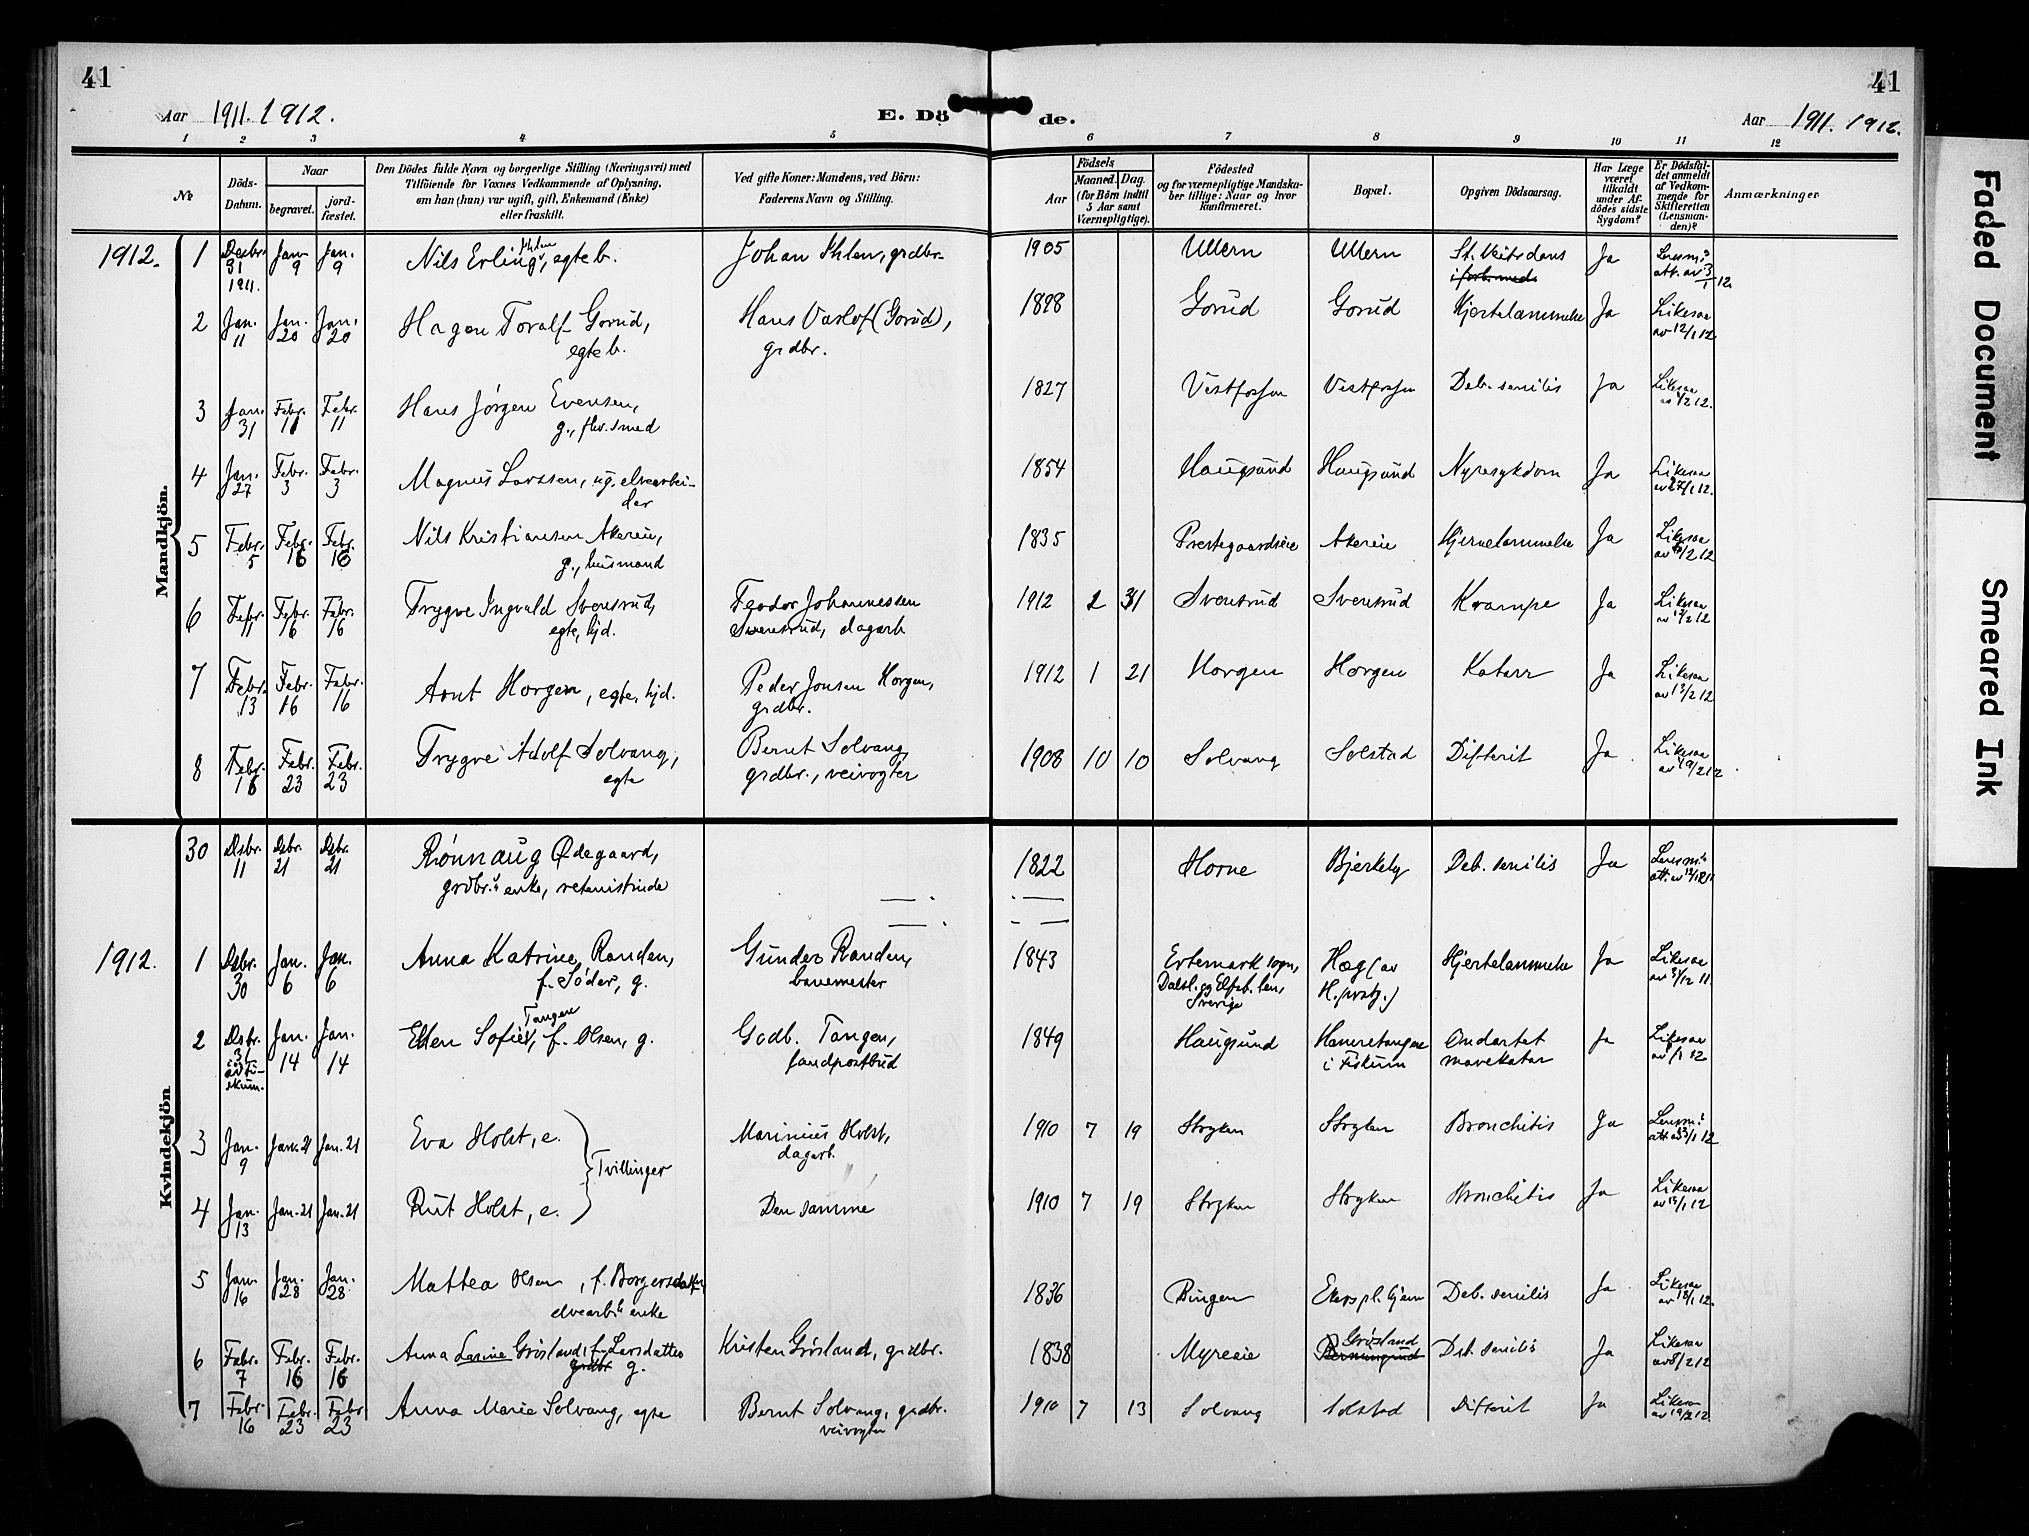 41
41
Aar 1911. 1912.
E. Döde.
Aar 1911. 1912.
1 2 3 4 5 6 7 8 9 10 11 12
No.
Döds-Datum.
Naar
begravet.
jord-fæstet.
Den Dödes fulde Navn og borgerlige Stilling (Næringsvei) med
Tilföiende for Voxnes Vedkommende af Oplysning,
om han (hun) var ugift, gift, Enkemand (Enke)
eller fraskilt.
Ved gifte Koner: Mandens, ved Börn:
Faderens Navn og Stilling.
Födsels
Aar
Maaned.
Dag.
(for Börn indtil
5 Aar samt
Værnepligtige).
Födested
og for værnepligtige Mandska-
ber tillige: Naar og hvor
konfirmeret.
Bopæl.
Opgiven Dödsaarsag.
Har Læge
været
tilkaldt
under Af-
dödes sidste
Sygdom?
Er Dödsfal-
det anmeldt
af Vedkom-
mende for
Skifteretten
(Lensman-
den)?
Anmærkninger
Mandkjön.
1912. 1 Desbr. 31 1911. Jan. 9 Jan. 9 Nils Erling Ihlen, egte b. Johan Ihlen, grdbr. 1905 Ullern Ullern St. Veitsdans Ja Lensm.s att. av 3/1 12.
2 Jan. 11 Jan. 20 Jan. 20 Hagen Toralf Gorud, egte b. Hans Oaslof (Gorud), grdbr. 1898 Gorud Gorud Hjertelammelse Ja Likesaa av 12/1 12
3 Jan. 31 Febr. 11 Febr. 11 Hans Jørgen Evensen, g., fhv. smed 1827 Vestfossen Vestfossen Deb. senilis Ja Likesaa 2 12.
4 Jan. 27 Febr. 3 Febr. 3 Magnus Larssen, ug. elvearbei-
der 1854 Haugsund Haugsund Nyresykdom Ja Likesaa av 27/1 12.
5 Febr. 5 Febr. 16 Febr. 16 Nils Kristiansen Akereie, g., husmand 1835 Prestegaardseie Akereie Hjernelammelse Ja Likesaa av /2 12
6 Febr. 11 Febr. 16 Febr. 16 Trygve Ingvald Svensrud, egte, hjd. Teodor Johannessen Svensrud, dagarb. 1912 2 31 Svensrud Svensrud Krampe Ja Likesaa av /2 12
7 Febr. 13 Febr. 16 Febr. 16 Arnt Horgen, egte, hjd. Peder Jonsen Horgen, grdbr. 1912 1 21 Horgen Horgen Katarr Ja Likesaa av 13/2 12
8 Febr. 16 Febr. 23 Febr. 23 Trygve Adolf Solvang, egte Bernt Solvang, grdbr., veivogter 1908 10 10 Solvang Solstad Difterit Ja Likesaa av 19/2 12.
Kvindekjön
30 Dsbr. 11 Dsbr. 21 Dsbr. 21 Rønnaug Ødegaard, grdbr.s enke, 1822 Horne Bjerkeby Deb. senilis Ja Lensm.s att. av 12/12 11
1912. 1 Dsbr. 30 Jan. 6 Jan. 6 Anna Katrine Randen, f. Söder, g. Gunder Randen, banemester 1843 Ertemark sogn, Dalsl. og Elfsb. len, Sverige Hæg (av H. prstg.) Hjertelammelse Ja Likesaa av 31/12 11.
2 Dsbr. 31 Jan. 14 Jan. 14 Ellen Sofie Tangen, f. Olsen, g. Godb. Tangen, landpostbud 1849 Haugsund i Fiskum Ondartet mavekatar Ja Likesaa av /1 12
3 Jan. 9 Jan. 21 Jan. 21 Eva Holst, e. Tvillinger Marinius Holst, dagarb. 1910 7 19 Stryken Stryken Bronchitis Ja Lensm.s att. av 13/1 12
4 Jan. 13 Jan. 21 Jan. 21 Rut Holst, e. Den samme 1910 7 19 Stryken Stryken Bronchitis Ja Likesaa av 15/1 12
5 Jan. 16 Jan. 28 Jan. 28 Mattea Olsen, f. Borgersdatter, elvearb.s enke 1836 Ringen Ekers pl. hjem Deb. senilis Ja Likesaa av 18/1 12.
6 Febr. 7 Febr. 16 Febr. 16 Anna Larine Grøsland, f. Larsdatter grdbr g. Kristen Grøsland, grdbr. 1838 Myreeie Grøsland Deb. senilis Ja Likesaa av 8/2 12
7 Febr. 16 Febr. 23 Febr. 23 Anna Marie Solvang, egte Bernt Solvang, grdbr. veivogter 1910 7 13 Solvang Solstad Difterit Ja Likesaa av 19/2 12.
Faded Document
Smeared Ink